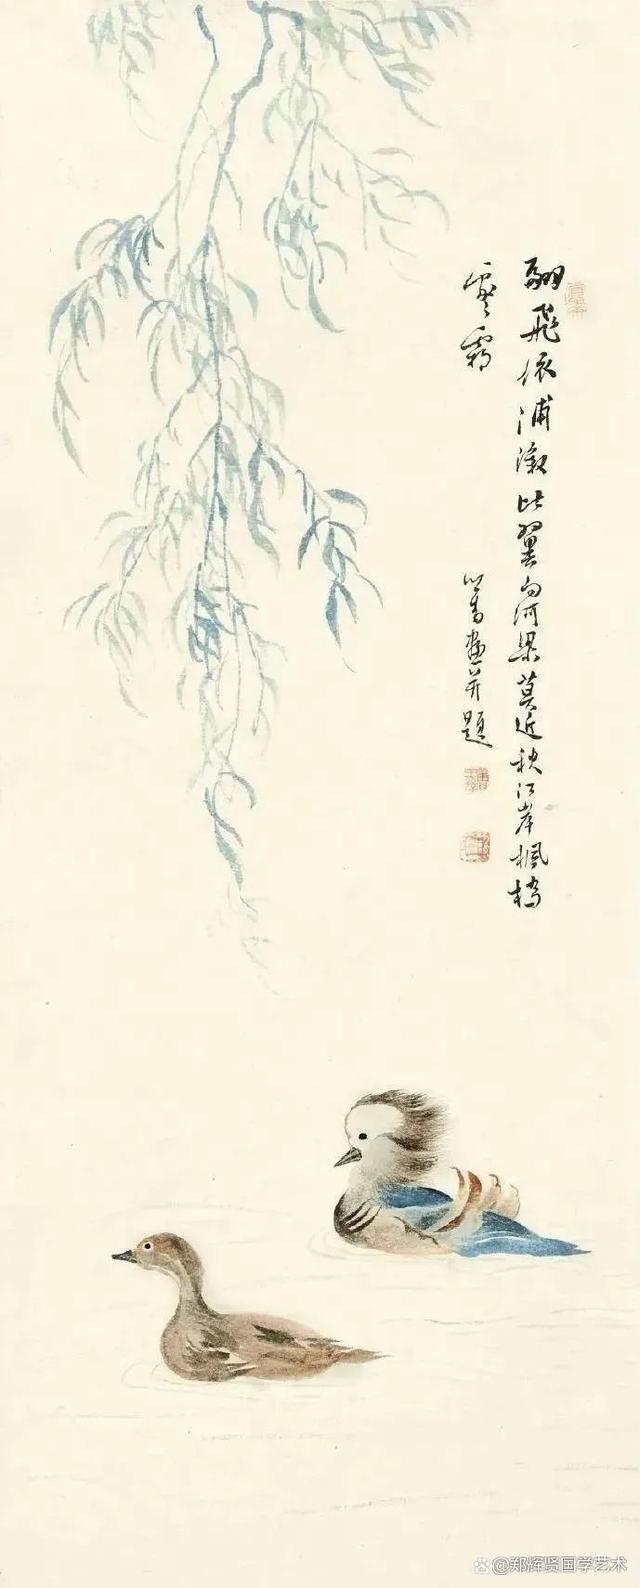 翩飛依浦漵比翼向河梁莫近秋江岸楓橋
霜
心畬畫并題
@郑辉贤国学艺术